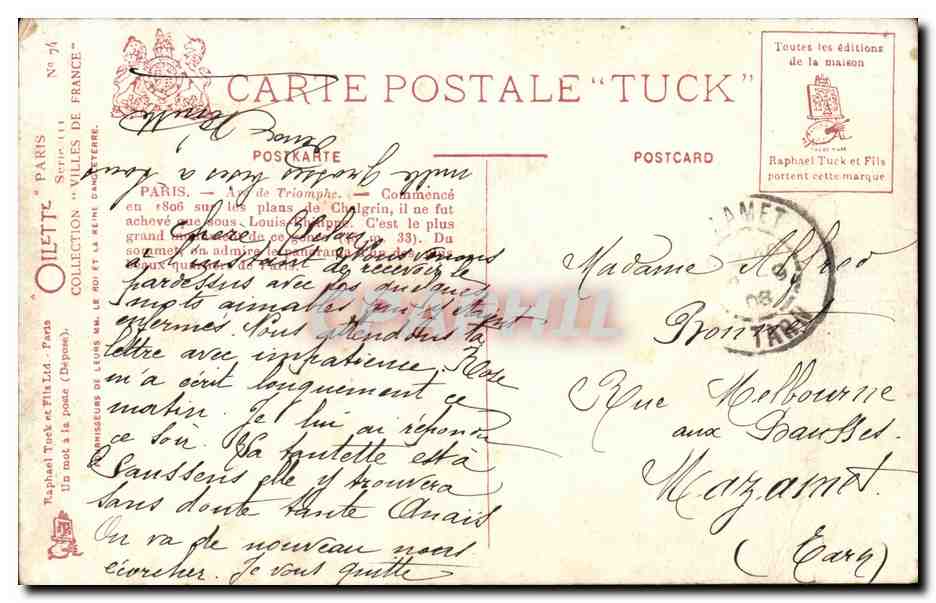 CARTE POSTALE "TUCK"
POSTKARTE
POSTCARD
Toutes les éditions
de la maison
Raphael Tuck et Fils
portent cette marque
"OILETTE" PARIS
Serie III
No 74
COLLECTION "VILLES DE FRANCE"
FOURNISSEURS DE LEURS MM. LE ROI ET LA REINE D'ANGLETERRE.
Raphael Tuck et Fils Ltd - Paris
Un mot à la poste (Déposé).
PARIS. — Arc de Triomphe. — Commencé
en 1806 sur les plans de Chalgrin, il ne fut
achevé que sous Louis-Philippe. C'est le plus
grand monument de ce genre 33). Du
sommet on admire le panorama des
beaux quartiers de Paris.
Chère
à l'instant Nous venons
de recevoir le
pardessus avec les quelques
mots aimables qui étaient
enfermés. Nous attendons ta
lettre avec impatience. Rose
m'a écrit longuement ce
matin. Je lui ai répondu
ce soir. Sa tantette est à
Saussens elle y trouvera
sans doute tante Anaïs
On va de nouveau nous
écorcher. Je vous quitte
mille grosses bises à tous
Madame
Rue Melbourne
aux Bausses.
Mazamet.
(Tarn)
MAZAMET
08
TARN
CPAPHIL